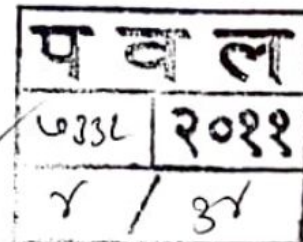 प व ल
७३३८ २०११
४ / ३४